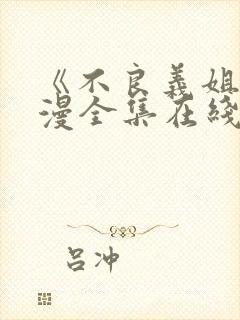 《不良義姐
漫全集在綫
呂冲